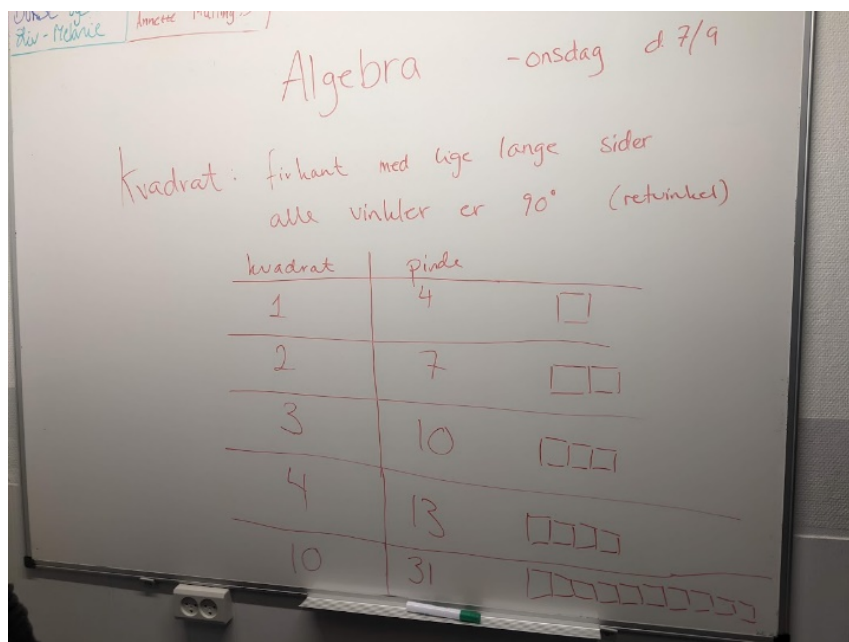 Liv-Melanie
Annette
Algebra -onsdag d. 7/9
Kvadrat: firkant med lige lange sider
alle vinkler er 90° (retvinkel)
kvadrat pinde
1 4
2 7
3 10
4 13
10 31